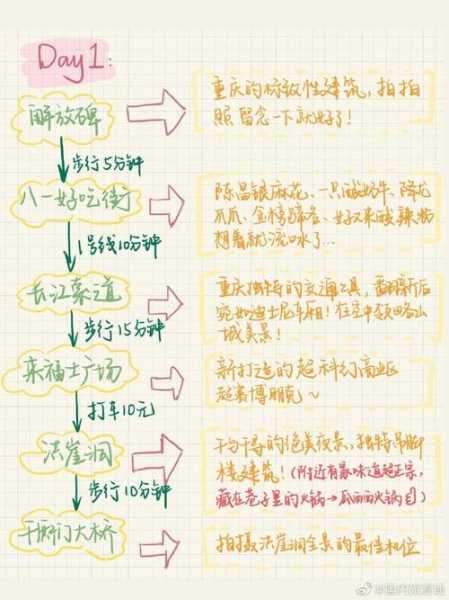 Day1:
解放碑
重庆的标致性建筑,拍拍
照留念一下就好了!
步行5分钟
八一好吃街
陈昌银麻花、一只酸奶牛、降龙
爪爪、好又来酸辣粉
想着就流口水了...
1号线10分钟
长江索道
重庆独特的交通工具,翻新后
宛如迪士尼车厢!在空中领略山
城美景!
步行15分钟
来福士广场
新打造的超科幻商业区
超赛博朋克~
打车10元
洪崖洞
千与千寻的绝美夜景,独特吊脚
楼建筑!(附近有家味道超正宗,
藏在巷子里的火锅→
步行10分钟
千厮门大桥
拍摄洪崖洞全景的最佳机位